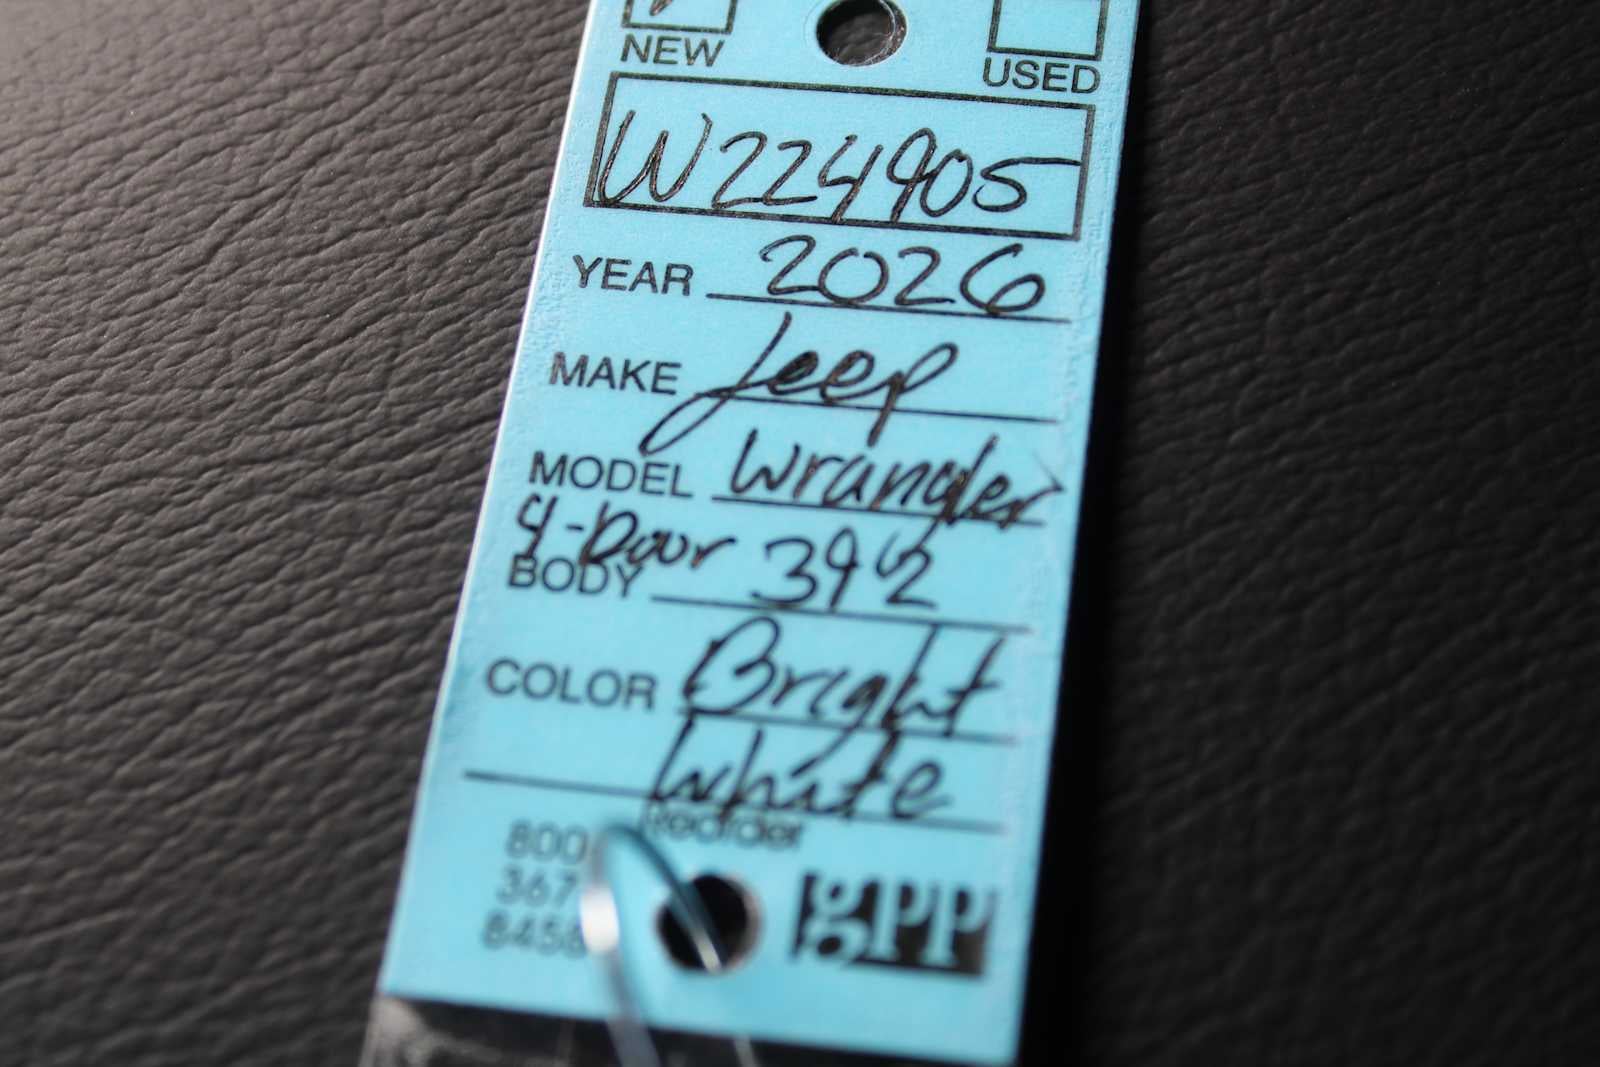 NEW USED
W224905
YEAR 2026
MAKE Jeep
MODEL Wrangler
4-Door 392
BODY
COLOR Bright
White
Reorder
800
367
8458
gPP